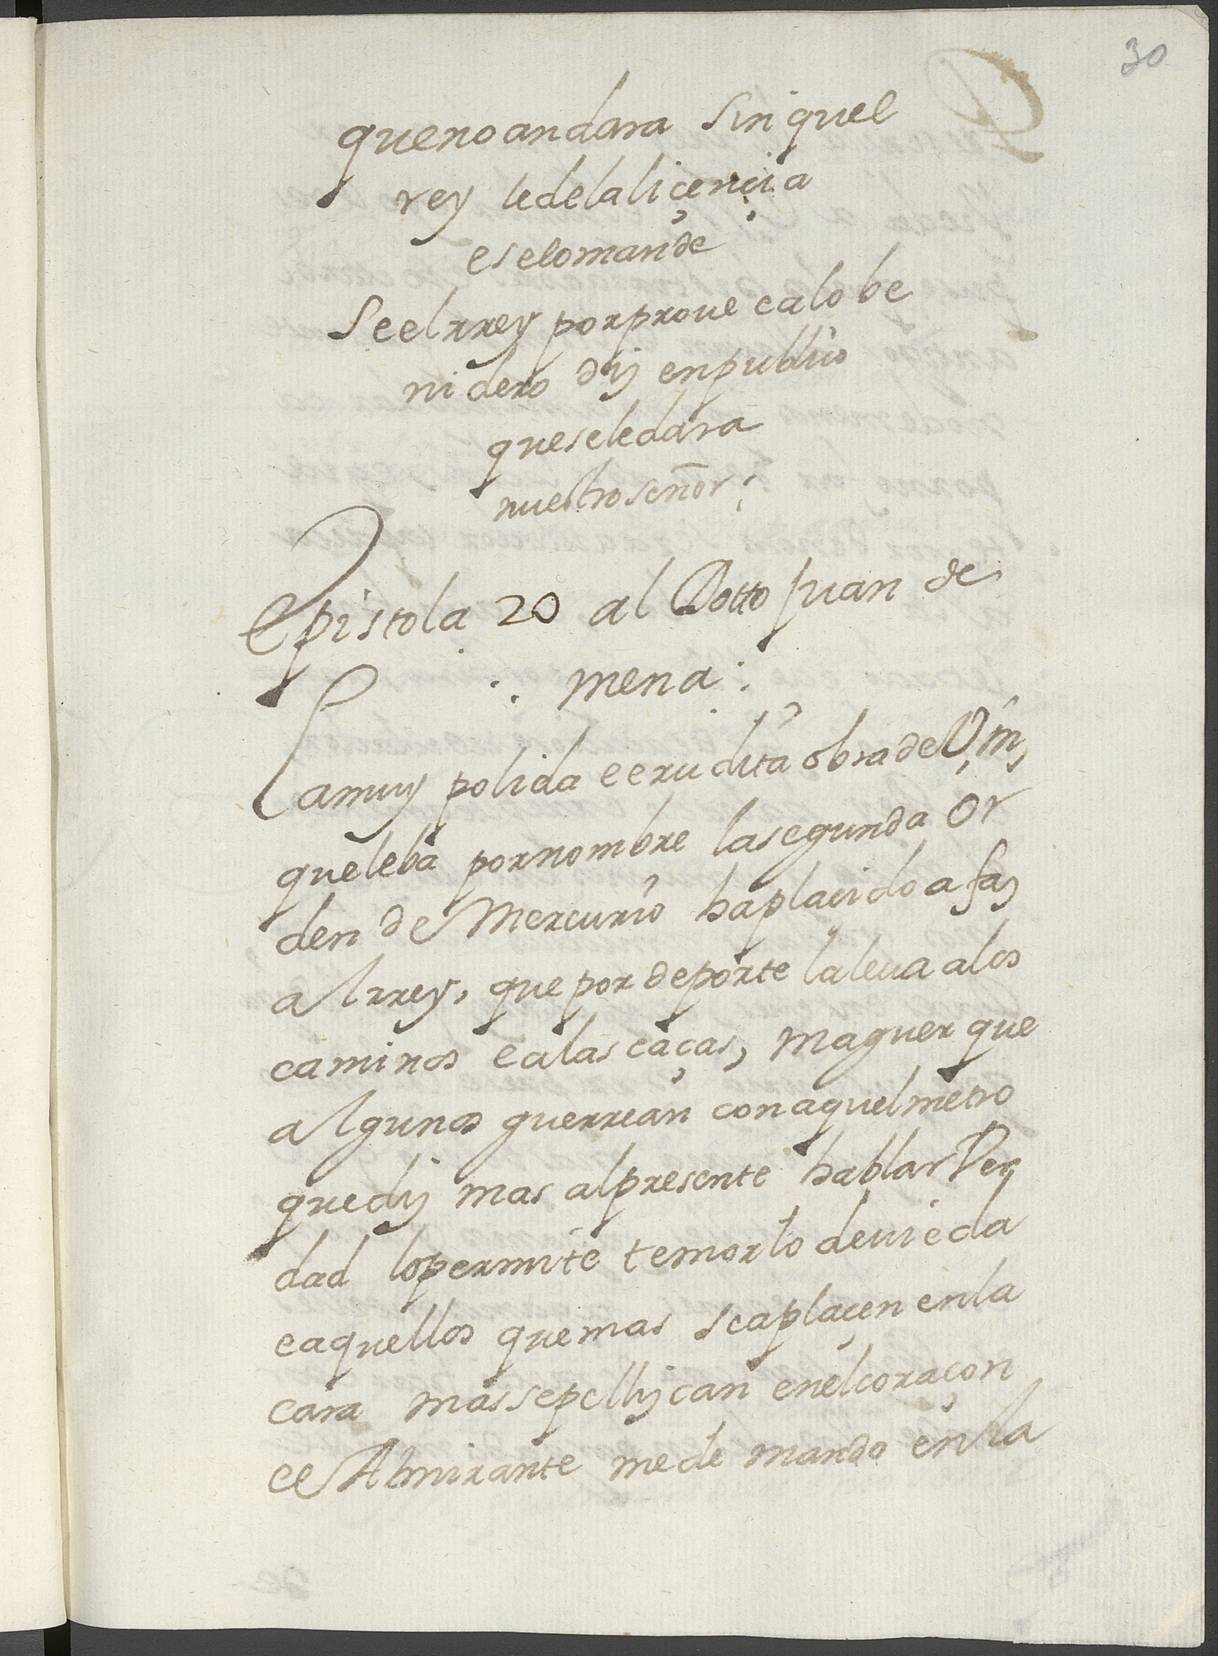 30
que no andara sin quel
rey le de la liçençia
e se lo mande
Se el rrey por prove e a lo be
nidero diz en publico
que se le dara
nuestro señor:
Epistola 20 al Dotto Juan de
mena:
La muy polida e erudita obra de V.m,
que leba por nombre la segunda Or
den de Mercurio ha placido a faz
al rrey, que por deporte la leua a los
caminos e a las caças, maguer que
algunos guerrean con aquel metro
que diz mas al presente hablar Ver
dad lo permite temor lo devieda
e aquellos que mas se aplaçen en la
cara mas se pellizcan en el coraçon
e el Almirante me de mando en la